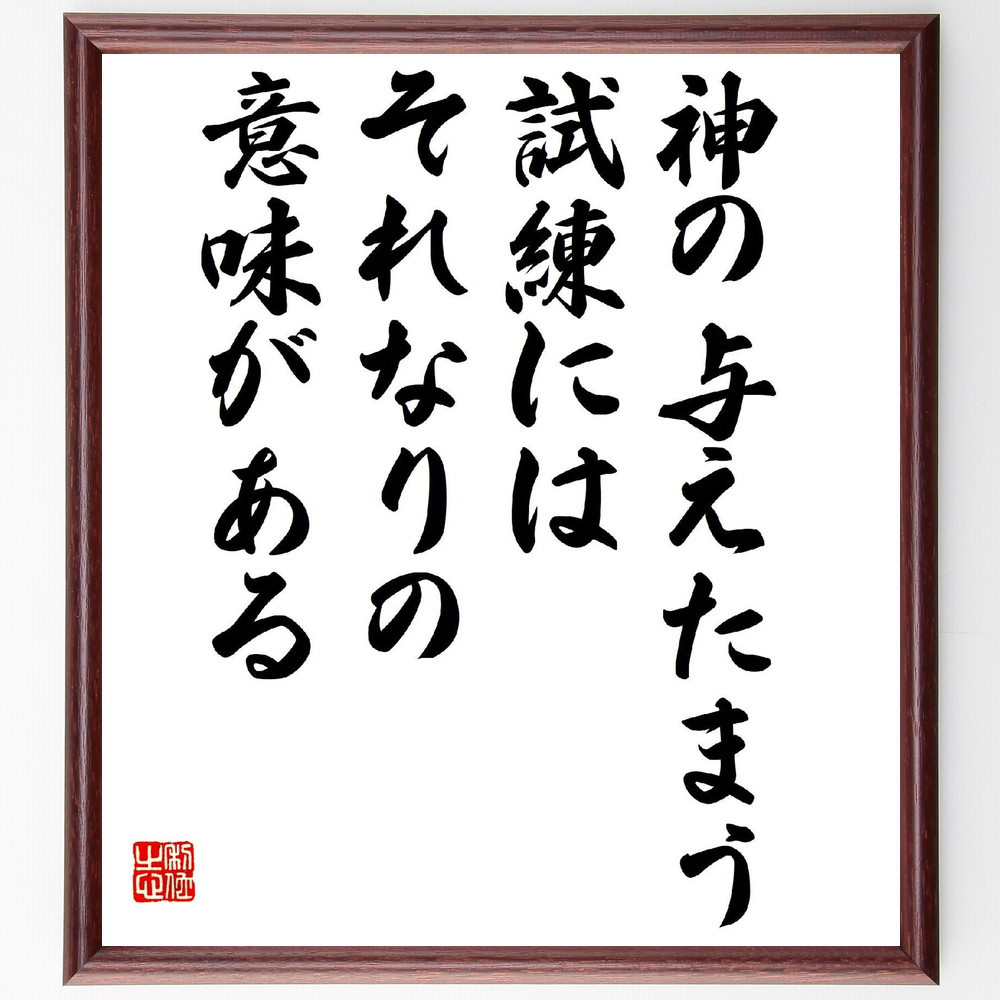 神の与えたまう
試練には
それなりの
意味がある